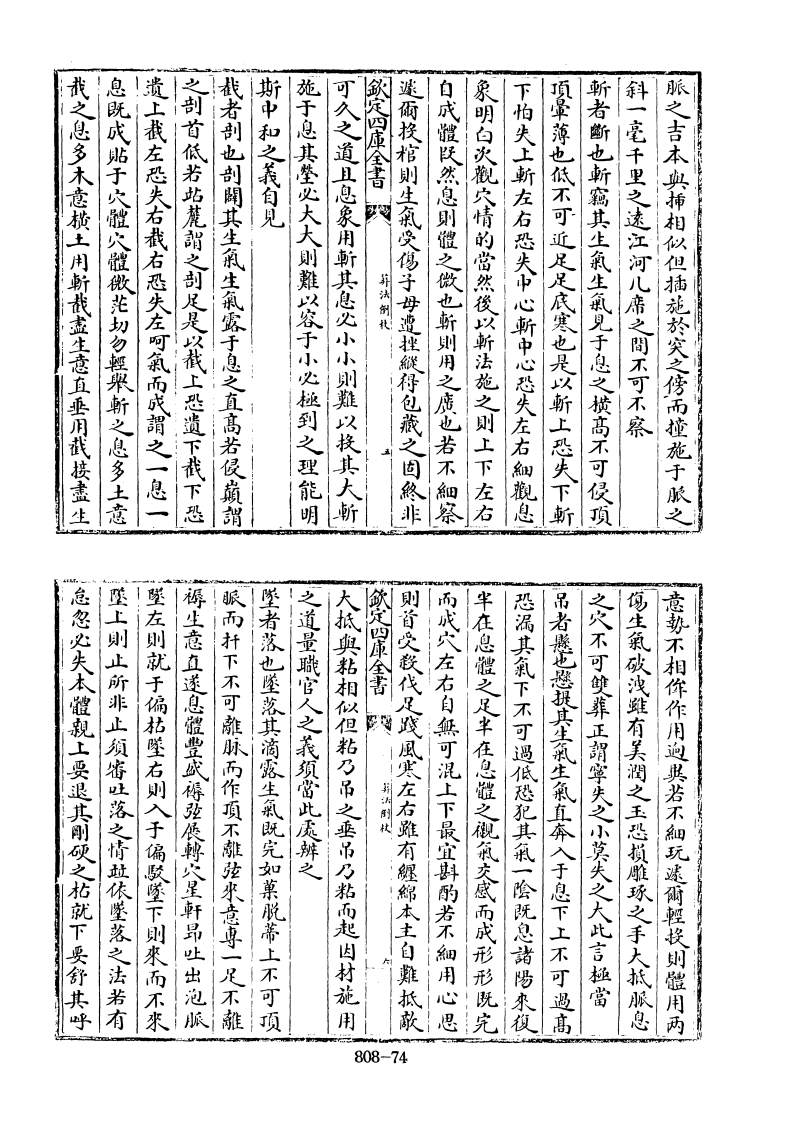 脈之吉本與揷相似但插施於突之傍而撞施于脈之
斜一毫千里之遠江河几席之間不可不察
斬者斷也斬竊其生氣生氣見于息之橫高不可侵頂
頂暈薄也低不可近足足底寒也是以斬上恐失下斬
下怕失上斬左右恐失中心斬中心恐失左右細觀息
象明白次觀穴情的當然後以斬法施之則上下左右
自成體旣然息則體之微也斬則用之廣也若不細察
遽爾投棺則生氣受傷子母遭挫縱得包藏之固終非
欽定四庫全書
葬法倒杖
五
可久之道且息象用斬其息必小小則難以投其大斬
施于息其塋必大大則難以容于小必極到之理能明
斯中和之義自見
截者剖也剖闢其生氣生氣露于息之直高若侵巔謂
之剖首低若站麓謂之剖足是以截上恐遺下截下恐
遺上截左恐失右截右恐失左呵氣而成謂之一息一
息既成貼于穴體穴體微茫切勿輕舉斬之息多土意
截之息多木意橫土用斬截盡生意直垂用截接盡生
意勢不相侔作用逈與若不細玩遽爾輕投則體用兩
傷生氣破洩雖有美潤之玉恐損雕琢之手大抵脈息
之穴不可雙葬正謂寧失之小莫失之大此言極當
吊者懸也懸提其生氣生氣直奔入于息下上不可過高
恐漏其氣下不可過低恐犯其氣一陰既息諸陽來復
半在息體之足半在息體之觀氣交感而成形形既完
而成穴左右自無可混上下最宜斟酌若不細用心思
則首受殺伐足踐風寒左右雖有纏綿本主自難抵敵
欽定四庫全書
葬法倒杖
六
大抵與粘相似但粘乃吊之垂吊乃粘而起因材施用
之道量職官人之義須當此處辨之
墜者落也墜落其滴露生氣既完如菓脫蒂上不可頂
脈而扦下不可離脈而作頂不離弦來意專一足不離
褥生意直遂息體豐盛褥弦展轉穴星軒昂吐出泡脈
墜左則就于偏枯墜右則入于偏駁墜下則來而不來
墜上則止所非止須審吐落之情竝依墜落之法若有
怠忽必失本體親上要退其剛硬之枯就下要舒其呼
808-74